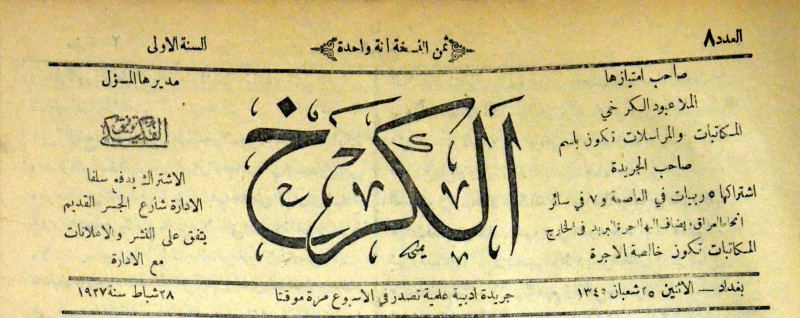 العدد ٨
ثمن النسخة آنة واحدة
السنة الاولى
صاحب امتيازها
الملا عبود الكرخي
المكاتبات والمراسلات تكون باسم
صاحب الجريدة
اشتراكها ٥ ربيات في العاصمة و ٧ في سائر
انحاء العراق، يضاف اليها اجرة البريد في الخارج
المكاتبات تكون خالصة الاجرة
الكرخ
مديرها المسؤل
توفيق الفكيكي
الاشتراك يدفع سلفا
الادارة شارع الجسر القديم
يتفق على النشر والاعلانات
مع الادارة
بغداد — الاثنين ٢٥ شعبان ١٣٤٥
جريدة ادبية علمية تصدر في الاسبوع مرة موقتا
٢٨ شباط سنة ١٩٢٧